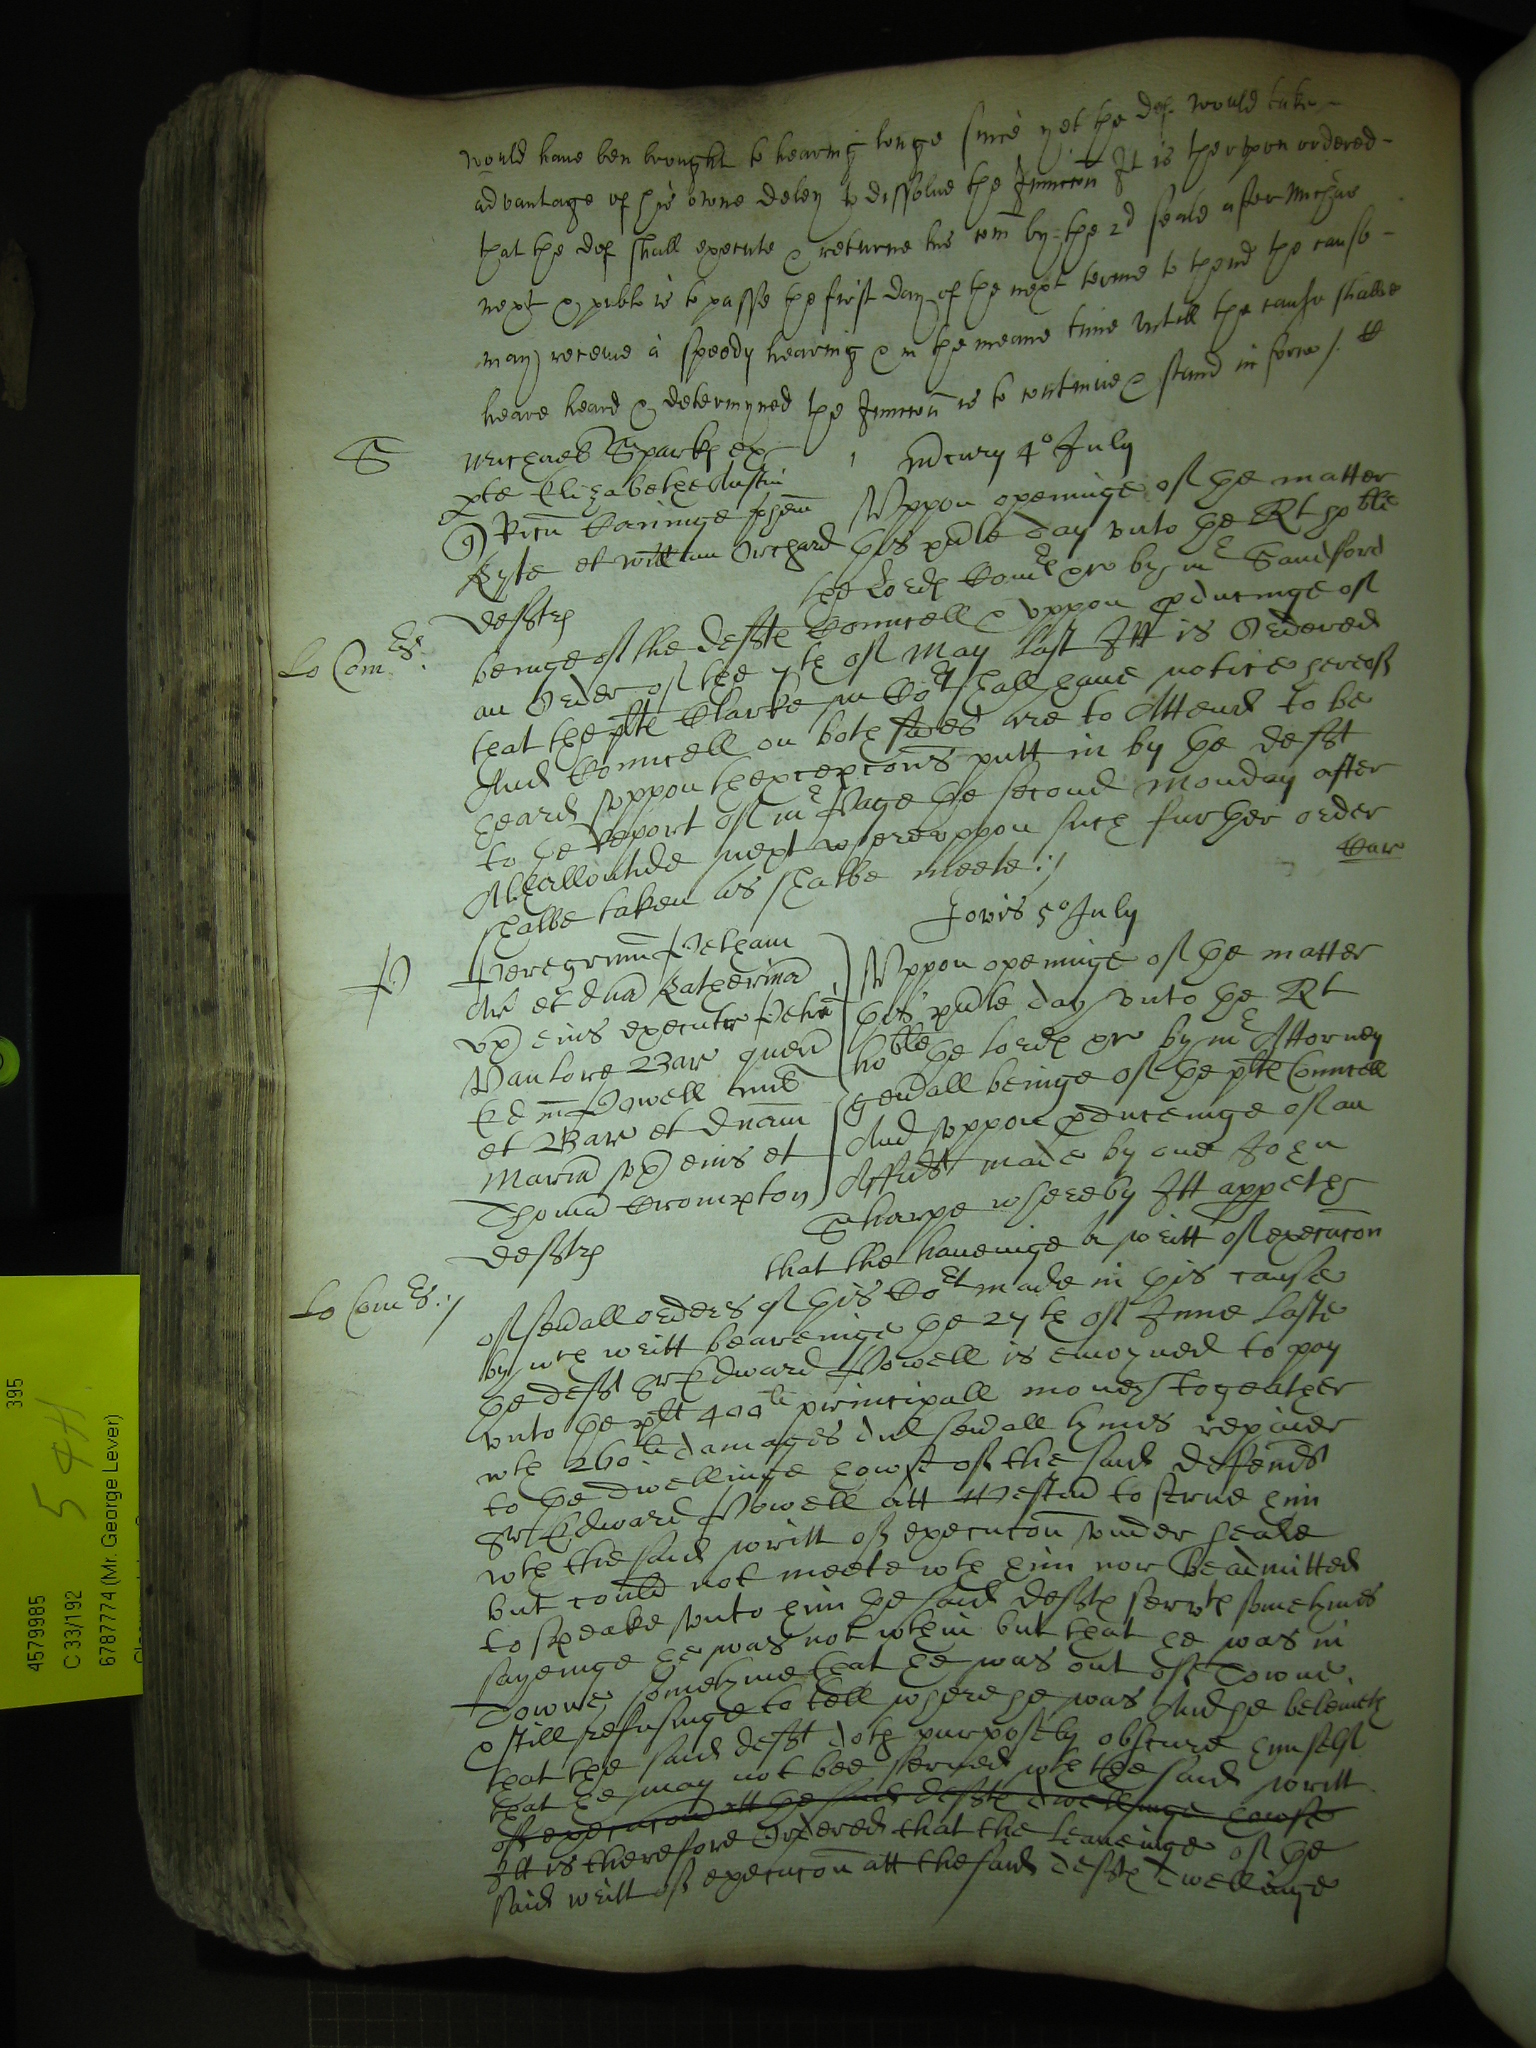 would have ben brought to hearing longe since yet the def. would take
advantage of his owne delay to dissolve the Iniunccon It is therupon ordered
that the def shall execute & returne his com by the 2d seale after Michas
next & publ is to passe the first day of the next terme to thend the cause
may receive a speedy hearing & in the meane time untill the cause shalbe
heare heard & determyned the Iniunccon is to continue & stand in force /.
S
Michael Sparke ex
pte Elizabethe Austin
Mercury 4o July
Kyte et Willum Orchard
deftes
Uppon openinge of the matter
this pnte day unto the Rt hoble
the Lordes Comrs &c by mr Sandford
Lo Comrs:
beinge of the deftes Councell & uppon pducinge of
an Order of the 7th of May last Itt is Ordered
that the plte Clarke in Cort shall have notice hereof
And Councell on both sides are to Attend to be
heard uppon thexcepcons putt in by the deft
to the Report of mr Page the second Monday after
Alhallontide next whereuppon such further order
shalbe taken as shalbe meete :/
Jovis 5o July
P
Peregrinu Pelham
Ar et dna Katherina
ux eius executr Petri
Vanlore Bar quer
Ed m Powell mil
et Bar et dnam
Maria ux eius et
Thoma Crompton
deftes
Uppon openinge of the matter
this pnte day unto the Rt
hoble the lordes &c by mr Attorney
genall beinge of the pltes Councell
And uppon pduceinge of an
Affidt made by one John
Sharpe whereby Itt appeth
that the haveinge a writt of execucon
Lo Comrs :/
of sevall orders of this Cort made in this cause
by wch writt beareinge the 27th of June laste
the deft Sr Edward Powell is enioyned to pay
unto the plt 400li principall money togeather
wth 260li damages did sevall tymes repaier
to the dwellinge howse of the said defendt
Sr Edward Powell att to serve him
wth the said writt of execucon under seale
but could not meete wth him nor be admitted
to speake unto him the said deftes servts sometymes
sayeinge he was not wthin but that he was in
Towne sometyme that he was out of Towne
& still refusinge to tell where he was And he beleiveth
that the said deft doth purposely obscure himself
that he may not bee served wth the said writt
of execucon att the said deftes dwellinge howse
Itt is therefore Ordered that the leaveinge of the
said writt of execucon att the said deftes dwellinge
395
54H
4579985
C 33/192
6787774 (Mr. George Lever)